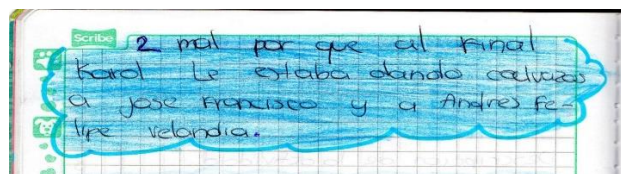 Scribe
2 mal por que al final
Karol Le estaba dando calvazos
a jose Francisco y a Andres Fe-
lipe velandia.